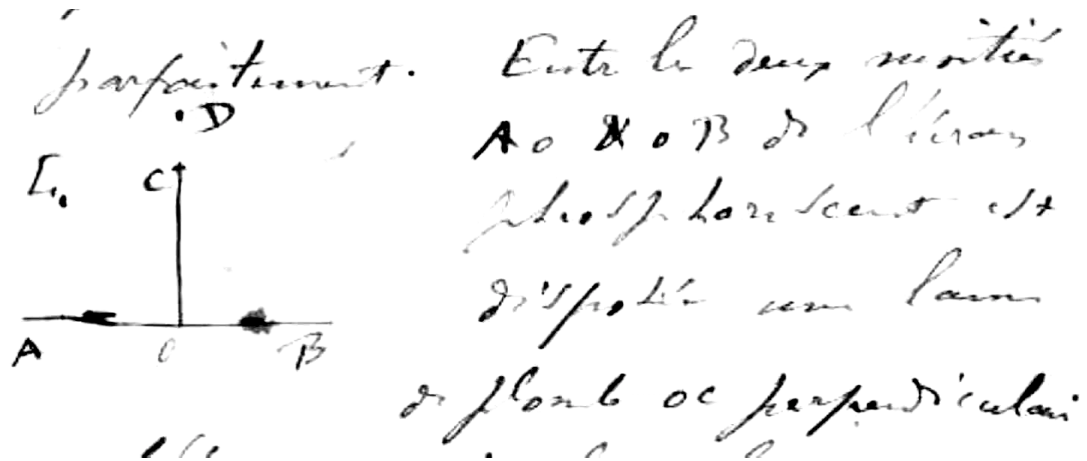 parfaitement. Entre les deux moitiés
D
AO & OB de l'écran
C
phosphorescent est
disposée une lame
A O B
de plomb OC perpendiculaire